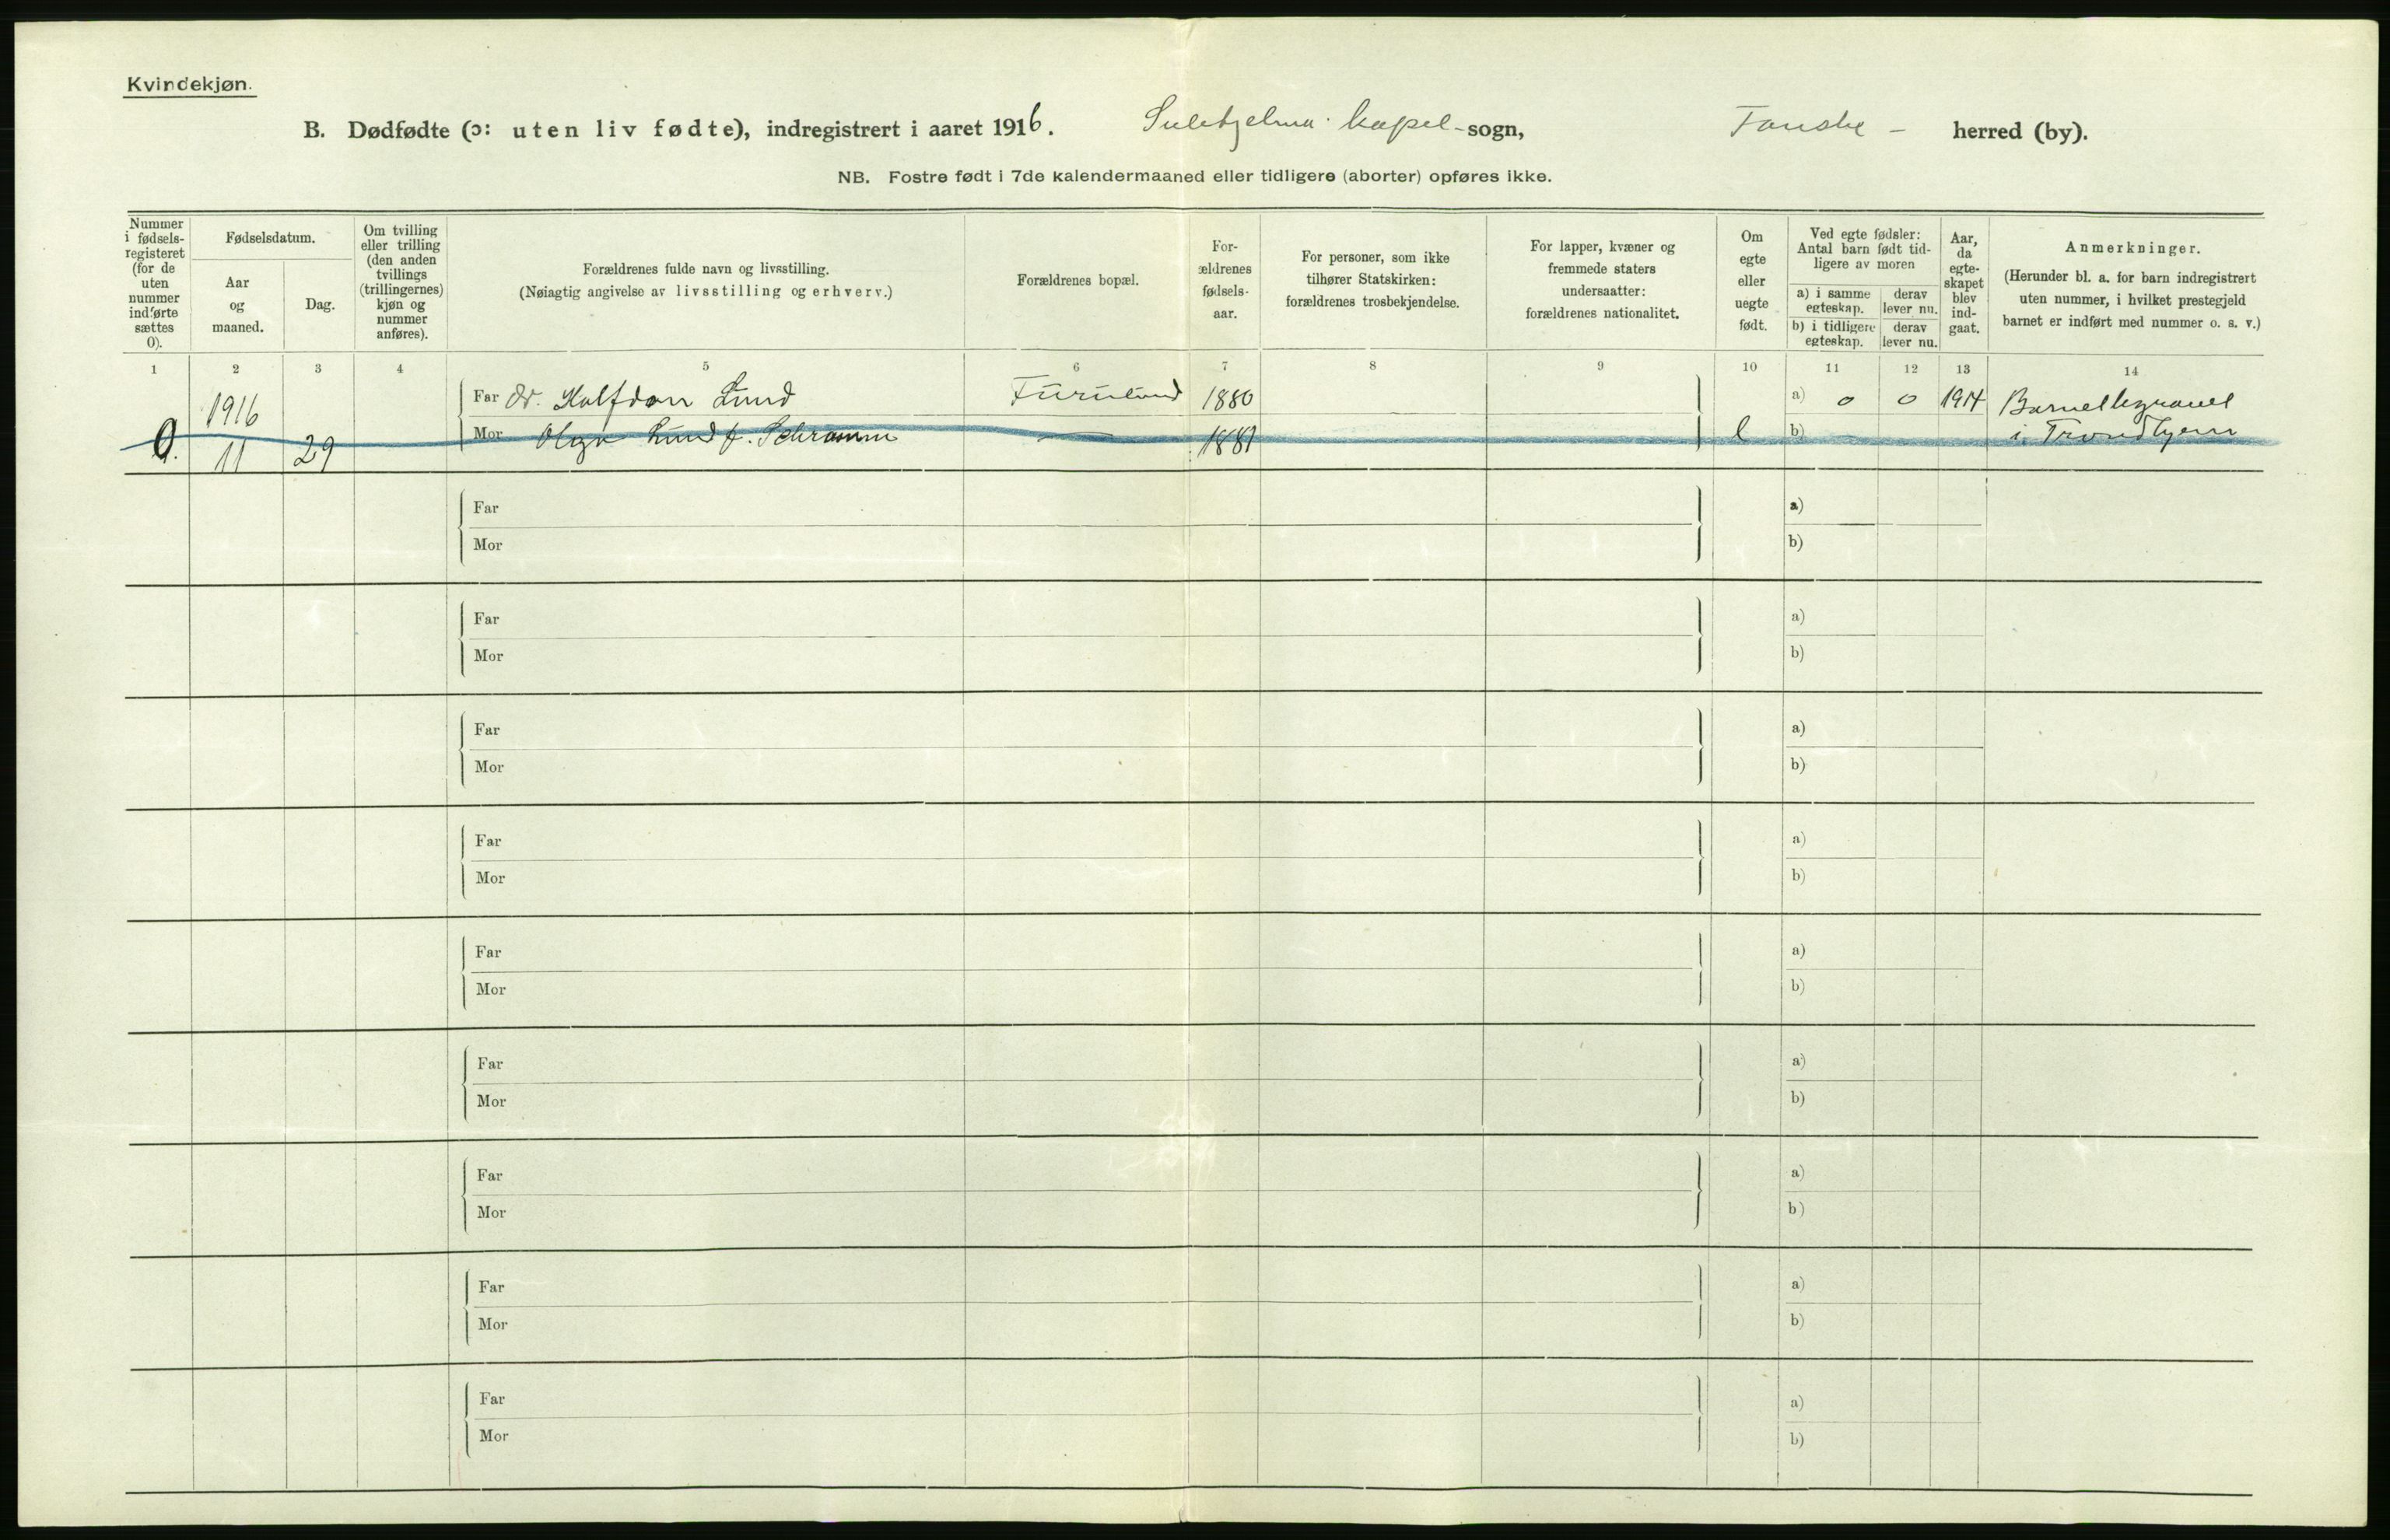 Kvindekjøn.
B. Dødfødte (ɔ: uten liv fødte), indregistrert i aaret 1916. Sulitjelma kapel - sogn, Fauske - herred (by).
NB. Fostre født i 7de kalendermaaned eller tidligere (aborter) opføres ikke.
Nummer i fødsels-registeret (for de uten nummer indførte sættes 0).
Fødselsdatum.
Aar og maaned.
Dag.
Om tvilling eller trilling (den anden tvillings (trillingernes) kjøn og nummer anføres).
Forældrenes fulde navn og livsstilling.
(Nøiagtig angivelse av livsstilling og erhverv.)
Forældrenes bopæl.
For-ældrenes fødsels-aar.
For personer, som ikke tilhører Statskirken: forældrenes trosbekjendelse.
For lapper, kvæner og fremmede staters undersaatter: forældrenes nationalitet.
Om egte eller uegte født.
Ved egte fødsler: Antal barn født tid-ligere av moren
a) i samme egteskap. derav lever nu.
b) i tidligere egteskap. derav lever nu.
Aar, da egte-skapet blev ind-gaat.
Anmerkninger.
(Herunder bl. a. for barn indregistrert uten nummer, i hvilket prestegjeld barnet er indført med nummer o. s. v.)
1 2 3 4 5 6 7 8 9 10 11 12 13 14
1916 Far Dr. Halfdan Lund Furulund 1880 a) 0 0 1914 Barnet begravet
0. 11 29 Mor Olga Lund f. Schramm — 1887 e b) i Trondhjem
Far a)
Mor b)
Far a)
Mor b)
Far a)
Mor b)
Far a)
Mor b)
Far a)
Mor b)
Far a)
Mor b)
Far a)
Mor b)
Far a)
Mor b)
Far a)
Mor b)